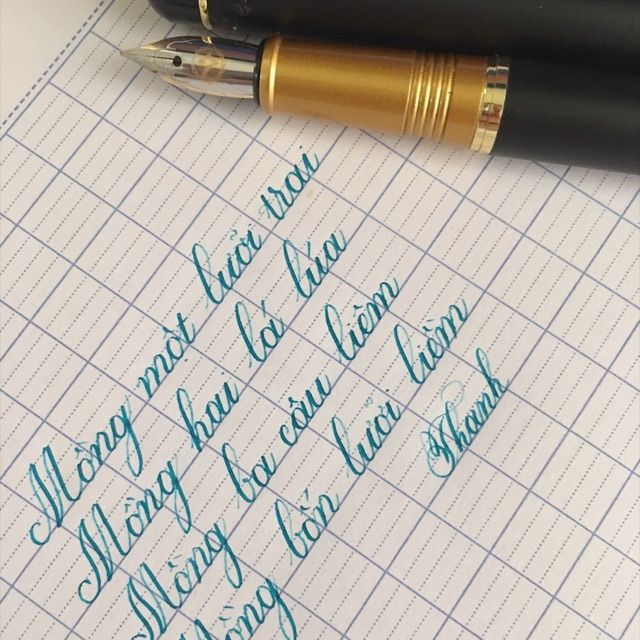 Mồng một lưỡi trai
Mồng hai lá lúa
Mồng ba câu liêm
Mồng bốn lưỡi liềm
Thanh